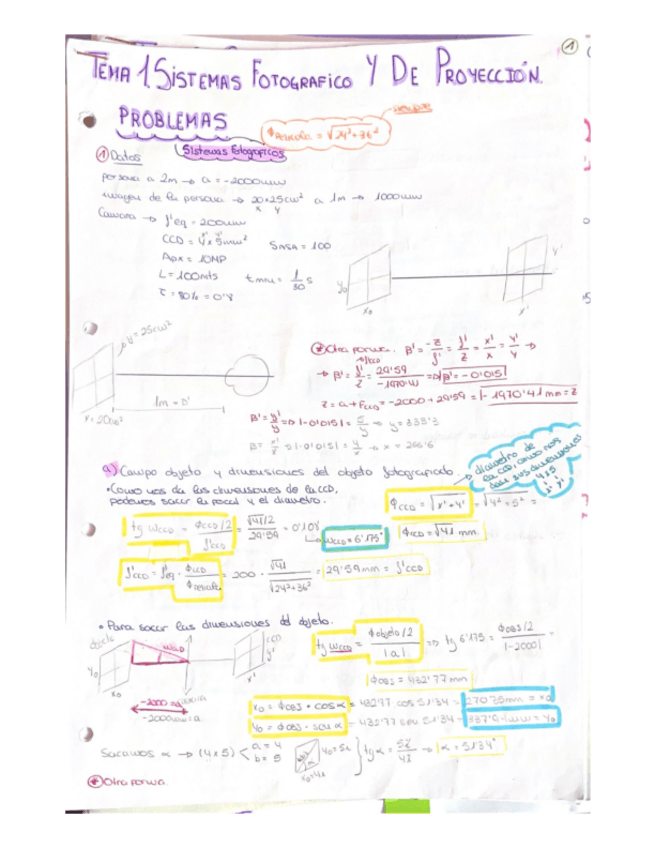 1
TEMA 1. SISTEMAS FOTOGRAFICO Y DE PROYECCIÓN.
PROBLEMAS
Φ película = √24²+36²
Sistemas fotograficos
① Datos
persona a 2m → a = -2000mm
imagen de la persona → 20x25cm² a 1m → 1000mm
x y
Camara → f'eq = 200mm
x' y'
CCD = 4x5mm²
SASA = 100
Apx = 10MP
L = 100nits
t min = 1/30 s
τ = 80% = 0'8
y0
x0
y'
x'
y = 25cm²
1m = D'
x = 20cm²
Otra forma. β' = -z/f' = f'/z = x'/x = y'/y →
→ β' = f'CCD/z = 29'59/-1970'41 → β' = -0'0151
z = a + fCCD = -2000 + 29'59 = -1970'41 mm = z
β' = y'/y → |-0'0151| = 5/y → y = 333'3
β = x'/x → |-0'0151| = 4/x → x = 266'6
a) Campo objeto y dimensiones del objeto fotografiado.
diametro de la CCD, como nos dan sus dimensiones 4x5
x' y'
• Como nos da las dimensiones de la CCD, podemos sacar la focal y el diametro.
ΦCCD = √x'²+y'² = √4²+5² =
tg wCCD = ΦCCD/2 / f'CCD = √41/2 / 29'59 = 0'108
wCCD = 6'175°
ΦCCD = √41 mm
f'CCD = f'eq · ΦCCD/Φpelicula = 200 · √41/√24²+36² = 29'59mm = f'CCD
• Para sacar las dimensiones del objeto.
objeto
wCCD
CCD
y0
x0
y'
x'
-2000mm = a
tg wCCD = Φobjeto/2 / |a| → tg 6'175 = ΦOBJ/2 / |-2000| =
ΦOBJ = 432'77mm
x0 = ΦOBJ · cos α = 432'77 cos 51'34 = 270'35mm = x0
y0 = ΦOBJ · sen α = 432'77 sen 51'34 = 337'94mm = y0
Sacamos α → (4x5) < a = 4 b = 5
tg α = → α = 51'34°
Otra forma